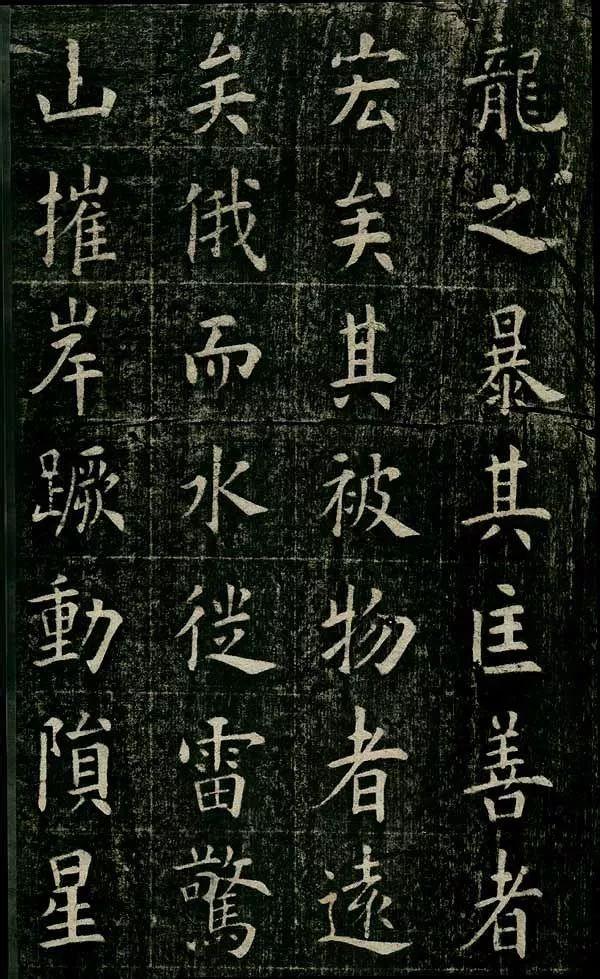 龍之暴其匡善者
宏矣其被物者遠
矣俄而水徙雷驚
山摧岸蹶動隕星